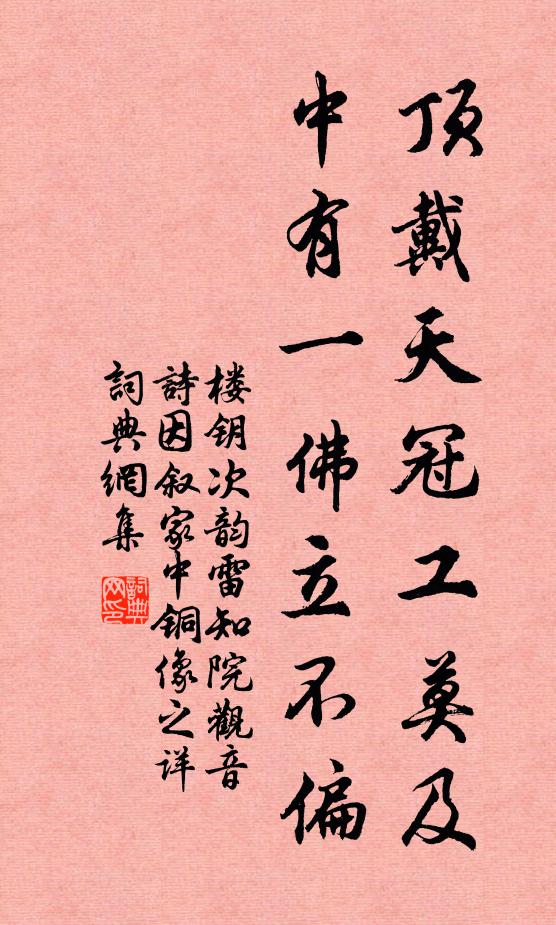 顶戴天冠工莫及
中有一佛立不偏
楼钥次韵雷知院觀音
詩因叙家中铜像之详
詞典網集
詞典
网印